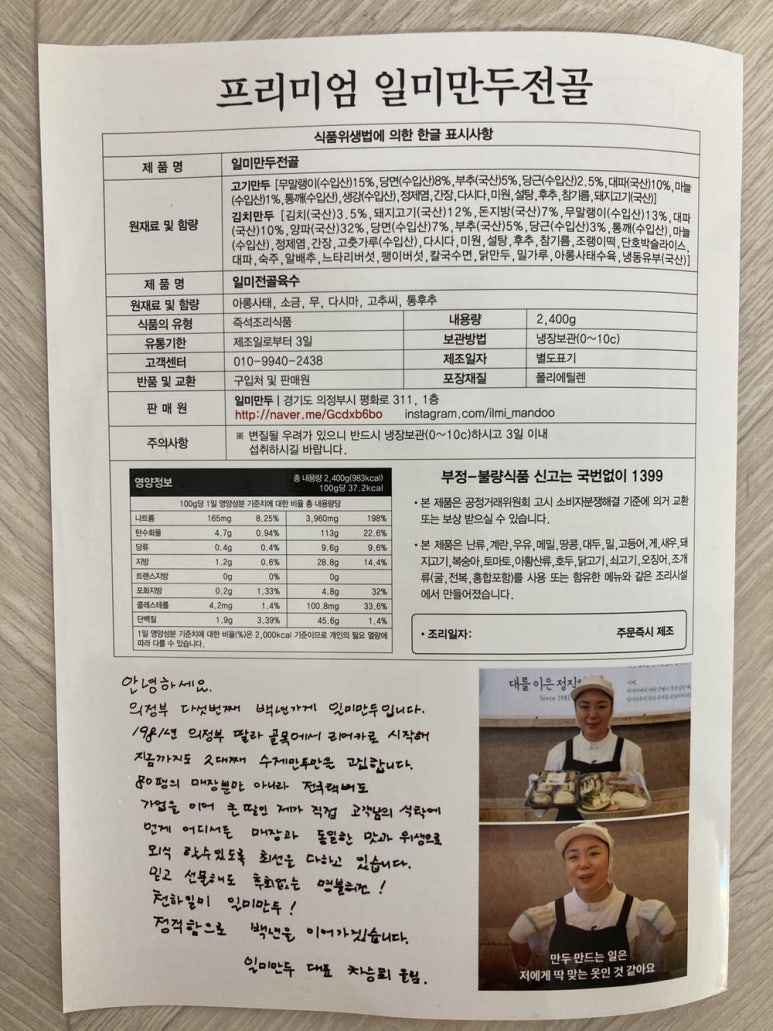 프리미엄 일미만두전골
식품위생법에 의한 한글 표시사항
제 품 명 일미만두전골
원재료 및 함량 고기만두 [무말랭이(수입산)15%,당면(수입산)8%,부추(국산)5%,당근(수입산)2.5%,대파(국산)10%,마늘
(수입산)1%,통깨(수입산),생강(수입산),정제염,간장,다시다,미원,설탕,후추,참기름,돼지고기(국산)]
김치만두 [김치(국산)3.5%, 돼지고기(국산)12%, 돈지방(국산)7%, 무말랭이(수입산)13%, 대파
(국산)10%,양파(국산)32%,당면(수입산)7%,부추(국산)5%,당근(국산)3%,통깨(수입산),마늘
(수입산),정제염,간장,고춧가루(수입산),다시다,미원,설탕,후추,참기름,조랭이떡,단호박슬라이스,
대파,숙주,알배추,느타리버섯,팽이버섯,칼국수면,닭만두,밀가루,아롱사태수육,냉동유부(국산)]
제 품 명 일미전골육수
원재료 및 함량 아롱사태, 소금, 무, 다시마, 고추씨, 통후추
식품의 유형 즉석조리식품 내용량 2,400g
유통기한 제조일로부터 3일 보관방법 냉장보관(0~10c)
고객센터 010-9940-2438 제조일자 별도표기
반품 및 교환 구입처 및 판매원 포장재질 폴리에틸렌
판 매 원 일미만두 | 경기도 의정부시 평화로 311, 1층
http://naver.me/Gcdxb6bo instagram.com/ilmi_mandoo
주의사항 ※ 변질될 우려가 있으니 반드시 냉장보관(0~10c)하시고 3일 이내
섭취하시길 바랍니다.
영양정보 총 내용량 2,400g(983kcal)
100g당 37.2kcal
100g당 1일 영양성분 기준치에 대한 비율 총 내용량당
나트륨 165mg 8.25% 3,960mg 198%
탄수화물 4.7g 0.94% 113g 22.6%
당류 0.4g 0.4% 9.6g 9.6%
지방 1.2g 0.6% 28.8g 14.4%
트랜스지방 0g 0% 0g
포화지방 0.2g 1.33% 4.8g 32%
콜레스테롤 4.2mg 1.4% 100.8mg 33.6%
단백질 1.9g 3.39% 45.6g 1.4%
1일 영양성분 기준치에 대한 비율(%)은 2,000kcal 기준이므로 개인의 필요 열량에
따라 다를 수 있습니다.
부정-불량식품 신고는 국번없이 1399
• 본 제품은 공정거래위원회 고시 소비자분쟁해결 기준에 의거 교환
또는 보상 받으실 수 있습니다.
• 본 제품은 난류,계란,우유,메밀,땅콩,대두,밀,고등어,게,새우,돼
지고기,복숭아,토마토,아황산류,호두,닭고기,쇠고기,오징어,조개
류(굴,전복,홍합포함)를 사용 또는 함유한 메뉴와 같은 조리시설
에서 만들어졌습니다.
• 조리일자: 주문즉시 제조
안녕하세요.
의정부 다섯번째 백년가게 일미만두입니다.
1981년 의정부 딸라 골목에서 리어카로 시작해
지금까지도 2대째 수제만두만을 고집합니다.
80평의 매장뿐만 아니라 전국택배도
가업을 이어 큰 딸인 제가 직접 고객님의 식탁에
언제 어디서든 매장과 동일한 맛과 위생으로
외식 할수있도록 최선을 다하고 있습니다.
믿고 선물해도 후회없는 명불허전!
천하일미 일미만두!
정직함으로 백년을 이어가겠습니다.
일미만두 대표 차승희 올림.
대를 이은 정직
Since 1981
만두 만드는 일은
저에게 딱 맞는 옷인 것 같아요